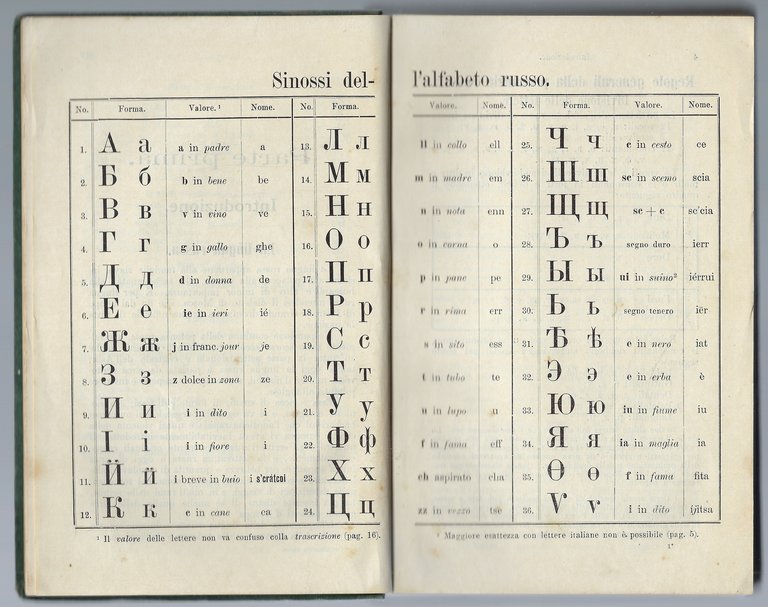 Sinossi del- l'alfabeto russo.
No. Forma. Valore.¹ Nome. No. Forma. Valore. Nome. No. Forma. Valore. Nome.
1. А а a in padre a 13. Л л ll in collo ell 25. Ч ч c in cesto ce
2. Б б b in bene be 14. М м m in madre em 26. Ш ш sc in scemo scia
3. В в v in vino ve 15. Н н n in nota enn 27. Щ щ sc + c sc'cia
4. Г г g in gallo ghe 16. О о o in corna o 28. Ъ ъ segno duro ierr
5. Д д d in donna de 17. П п p in pane pe 29. Ы ы ui in suino² iérrui
6. Е е ie in ieri ié 18. Р р r in rima err 30. Ь ь segno tenero iër
7. Ж ж j in franc. jour je 19. С с s in sito ess 31. Ѣ ѣ e in nero iat
8. З з z dolce in zona ze 20. Т т t in tubo te 32. Э э e in erba è
9. И и i in dito i 21. У у u in lupo u 33. Ю ю iu in fiume iu
10. І і i in fiore i 22. Ф ф f in fama eff 34. Я я ia in maglia ia
11. Й й i breve in buio i s'crátcoi 23. Х х ch aspirato cha 35. Ѳ ѳ f in fama fita
12. К к c in cane ca 24. Ц ц zz in vezzo tse 36. Ѵ ѵ i in dito ijitsa
¹ Il valore delle lettere non va confuso colla trascrizione (pag. 16).
² Maggiore esattezza con lettere italiane non è possibile (pag. 5).
1*